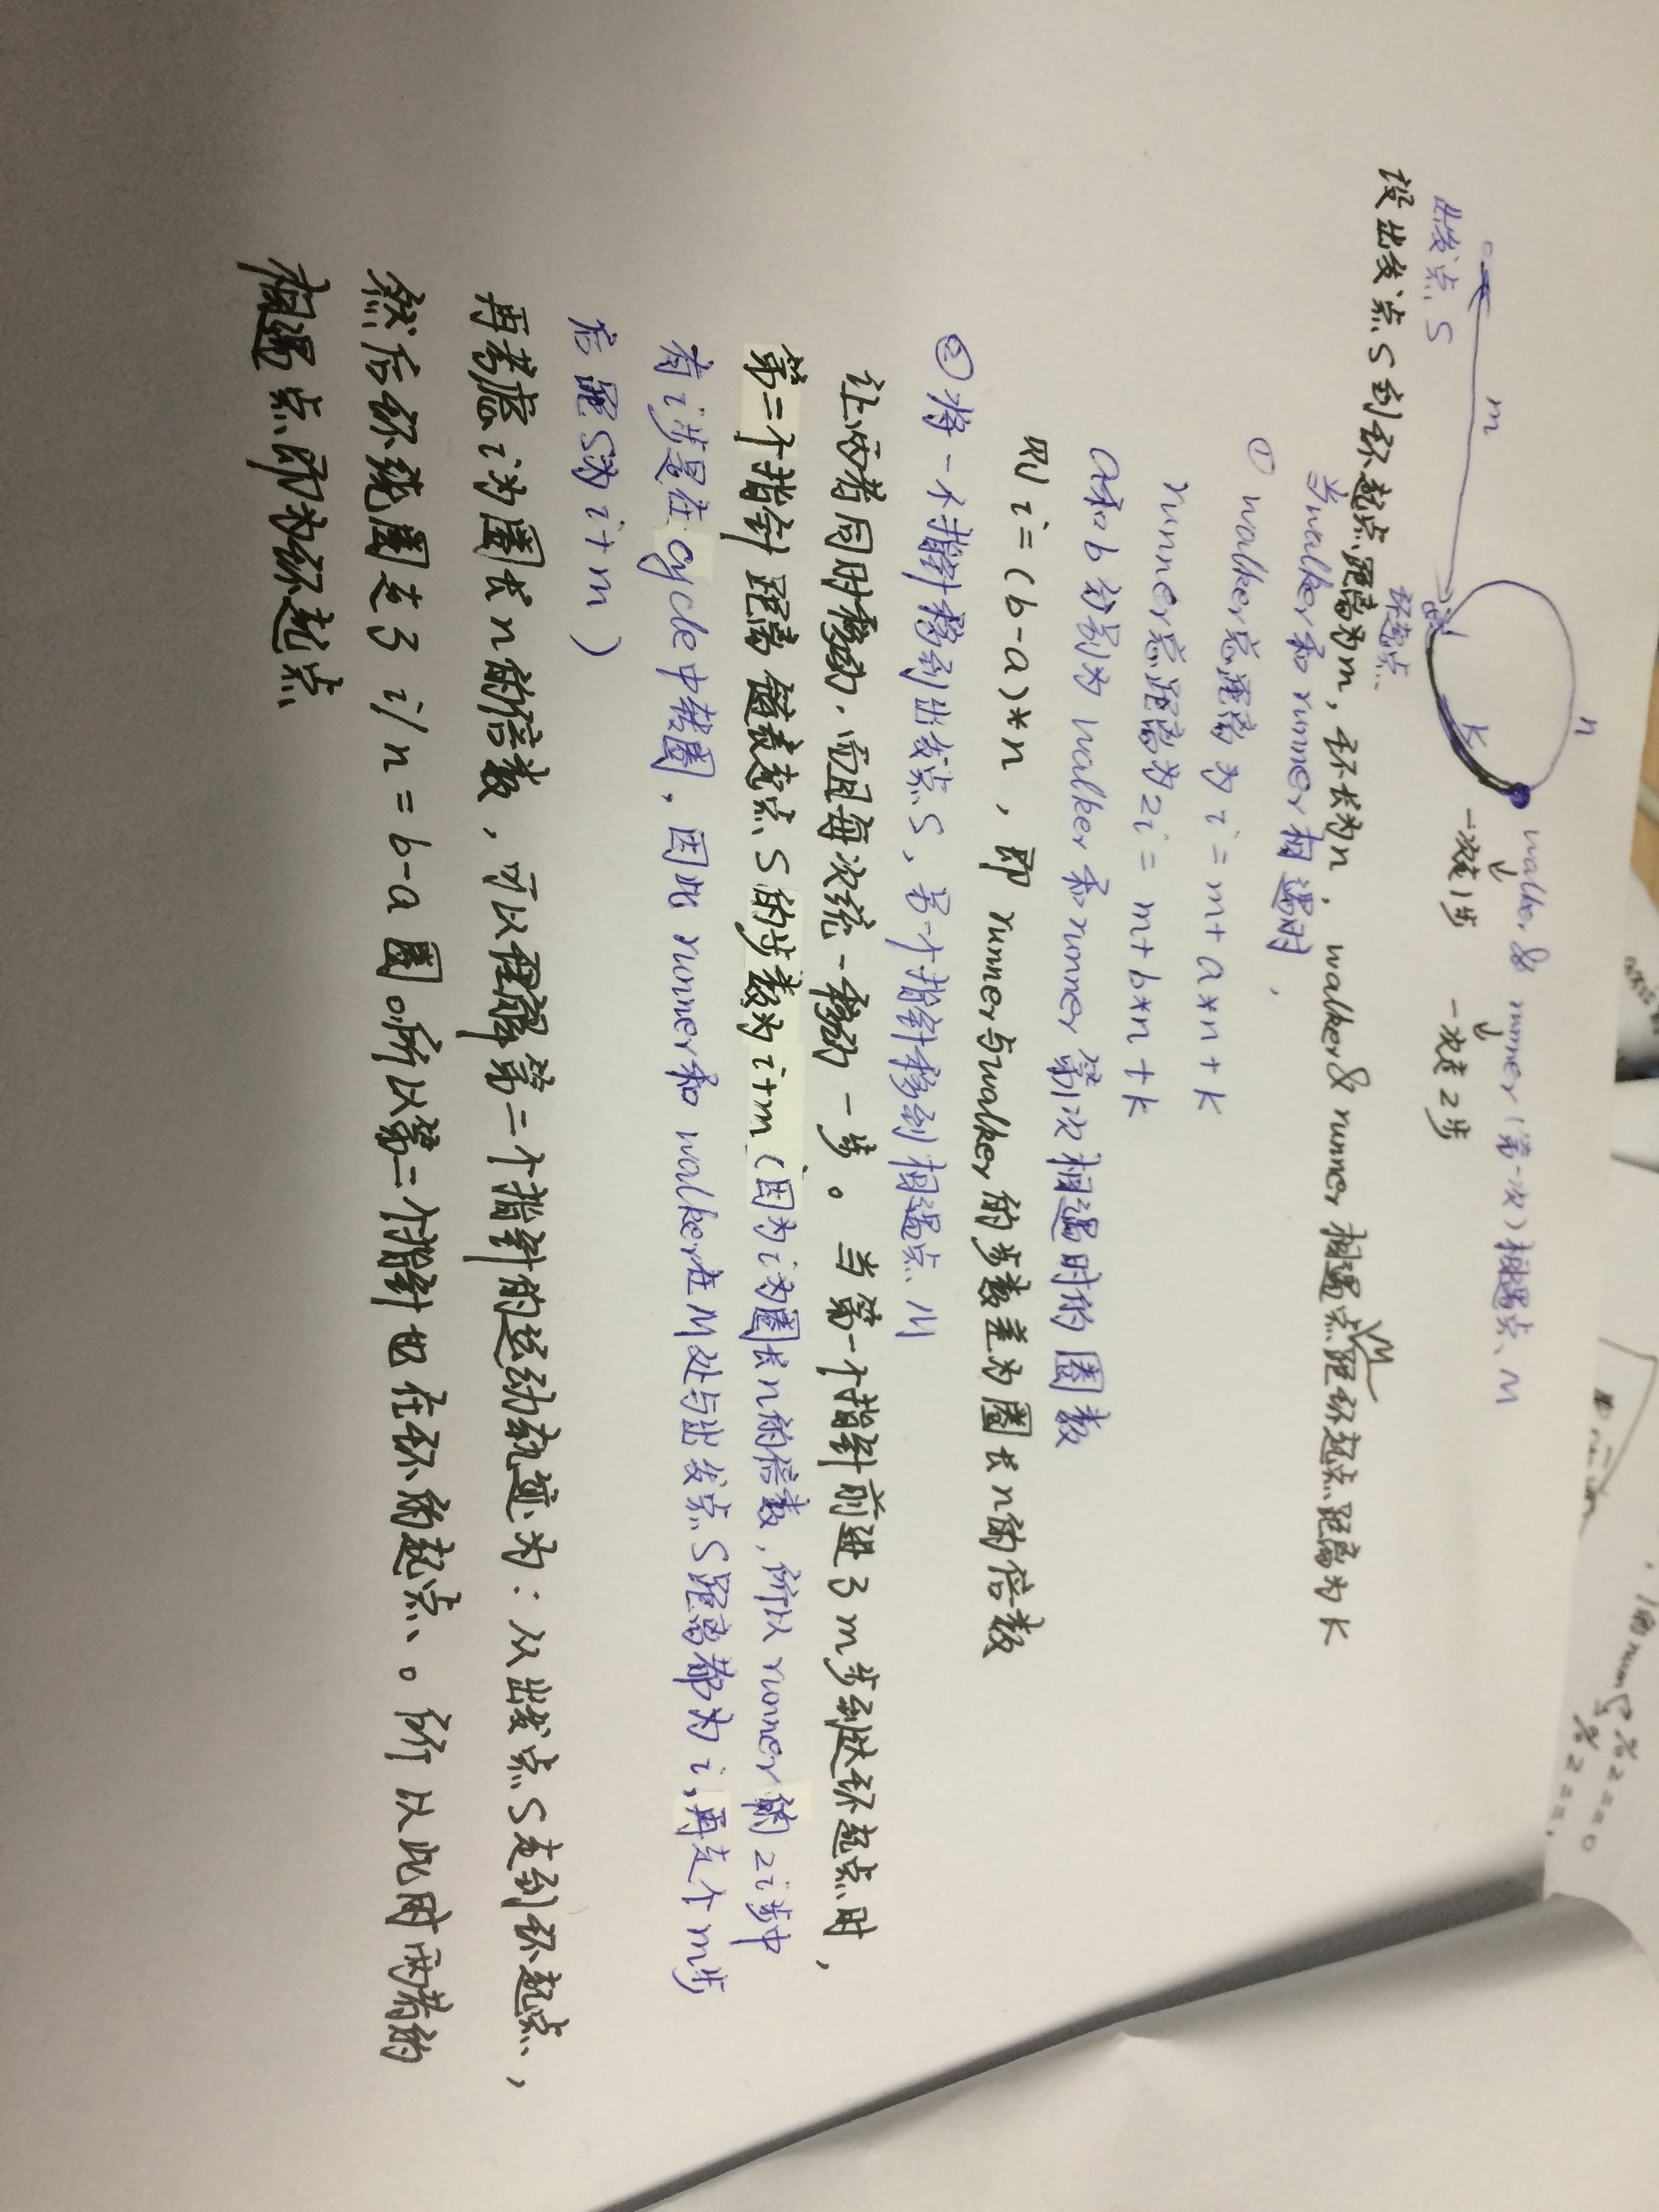 n
m
k
出发点 S
环起点
walker & runner (第一次) 相遇点 M
一次走1步
一次走2步
设出发点 S 到环起点距离为m, 环长为n, walker & runner 相遇点距环起点距离为 k
M
当walker和runner相遇时,
① walker总距离为 i = m + a*n + k
runner总距离为 2i = m + b*n + k
a和b分别为 walker 和 runner 第1次相遇时的圈数
则 i = (b-a)*n, 即 runner与walker 的步数差为圈长n的倍数
② 将一个指针移到出发点 S, 另一个指针移到相遇点 M
让两者同时移动, 而且每次统一移动一步。当第一个指针前进了m步到达环起点时,
第二个指针距离链表起点 S 的步数为 i+m (因为 i 为圈长n的倍数, 所以 runner的 2i步中
有 i 步是在cycle中转圈, 因此 runner和 walker在M处与出发点 S 距离都为 i, 再走个m步
后距S为 i+m)
再考虑 i 为圈长n的倍数, 可以理解第二个指针的运动轨迹为: 从出发点 S 走到环起点,
然后环绕圈走了 i/n = b-a 圈。所以第二个指针也在环的起点。所以此时两者的
相遇点即为环起点
1的num
% 2 == 0
% 2 ==